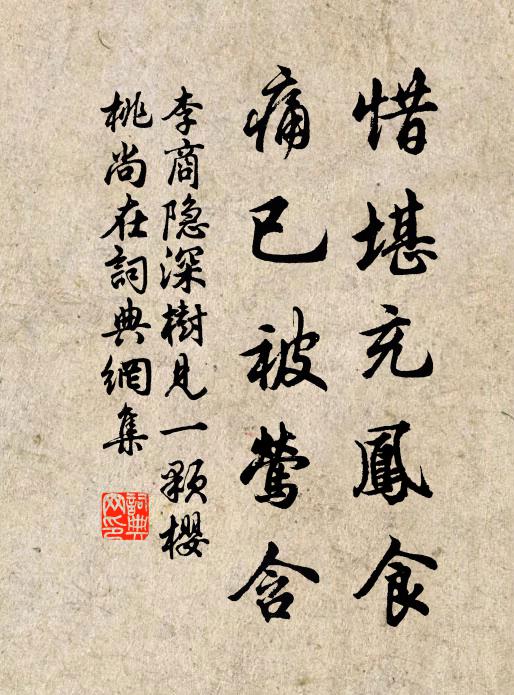 惜堪充鳳食
痛已被鶯含
李商隐深樹見一顆櫻
桃尚在詞典網集
詞典
网印